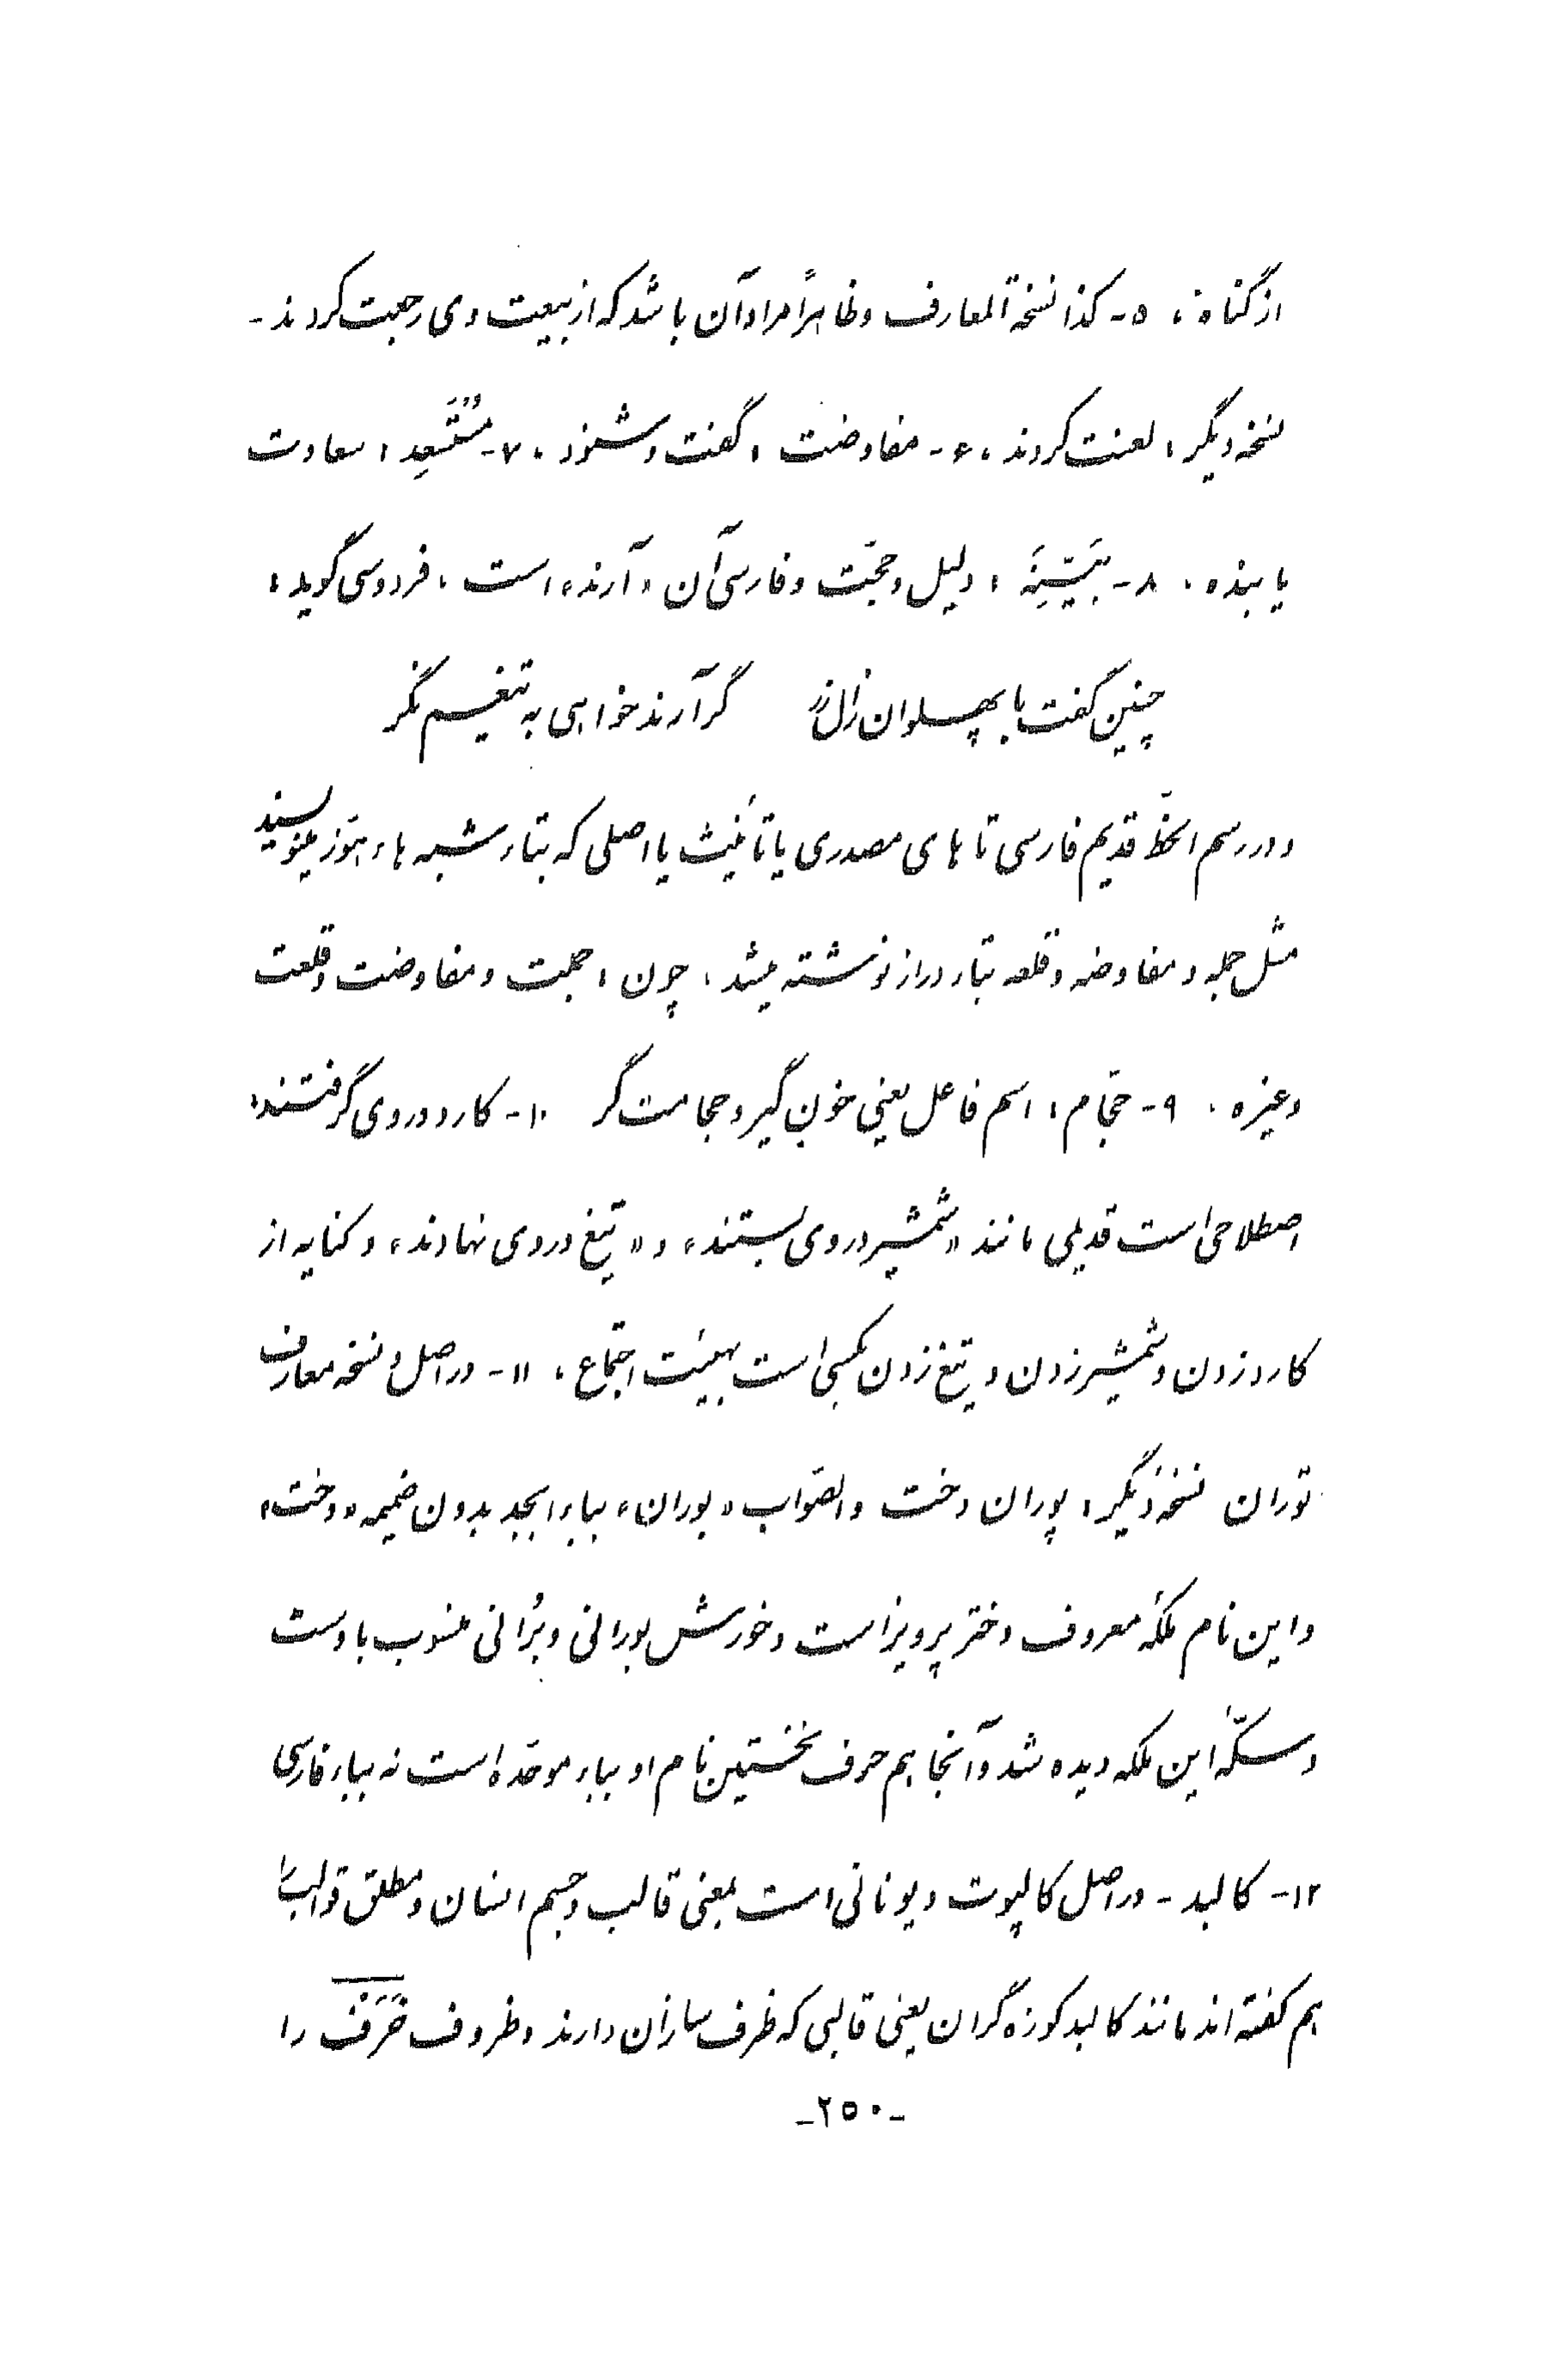 از گناه ، ۵- کذا نسخة المعارف و ظاهراً مراد آن باشد که از بیعت وی رجعت کردند -
نسخه دیگر : لعنت کردند ، ۶- مفاوضت : گفت و شنود ، ۷- مُستَسعِد : سعادت
یابنده . ۸- بَیِّنَة : دلیل و حجّت و فارسی آن « آرند » است ، فردوسی گوید :
چنین گفت با پهلوان زال زر    گر آرند خواهی به تیغم نگر
و در رسم الخطّ قدیم فارسی تا های مصدری یا تأنیث یا اصلی که بتاء شبیه هاء هوّز مینویسند
مثل حجة و مفاوضه و قلعه بتاء دراز نوشته میشد ، چون : حجت و مفاوضت و قلعت
و غیره . ۹- حجّام : اسم فاعل یعنی خون گیر و حجامت گر ۱۰- کارد در وی گرفتند :
اصطلاحی است قدیمی مانند « شمشیر در وی بستند » و « تیغ در وی نهادند » و کنایه از
کارد زدن و شمشیر زدن و تیغ زدن بکسی است بهیئت اجتماع ، ۱۱- در اصل و نسخه معارف
توران نسخه دیگر : پوران دخت والصّواب « بوران » بباء ابجد بدون ضمیمه « دخت »
و این نام ملکهٔ معروف دختر پرویز است و خورش بورانی و بُرانی منسوب باوست
و سکّهٔ این ملکه دیده شد و آنجا هم حرف نخستین نام او بباء موحّده است نه بباء فارسی
۱۲- کالبد - در اصل کالپوت و یونانی است بمعنی قالب و جسم انسان و مطلق قوالب را
هم گفته اند مانند کالبد کوزه گران یعنی قالبی که ظرف سازان دارند و ظروف خَزَف را
-۲۵۰-